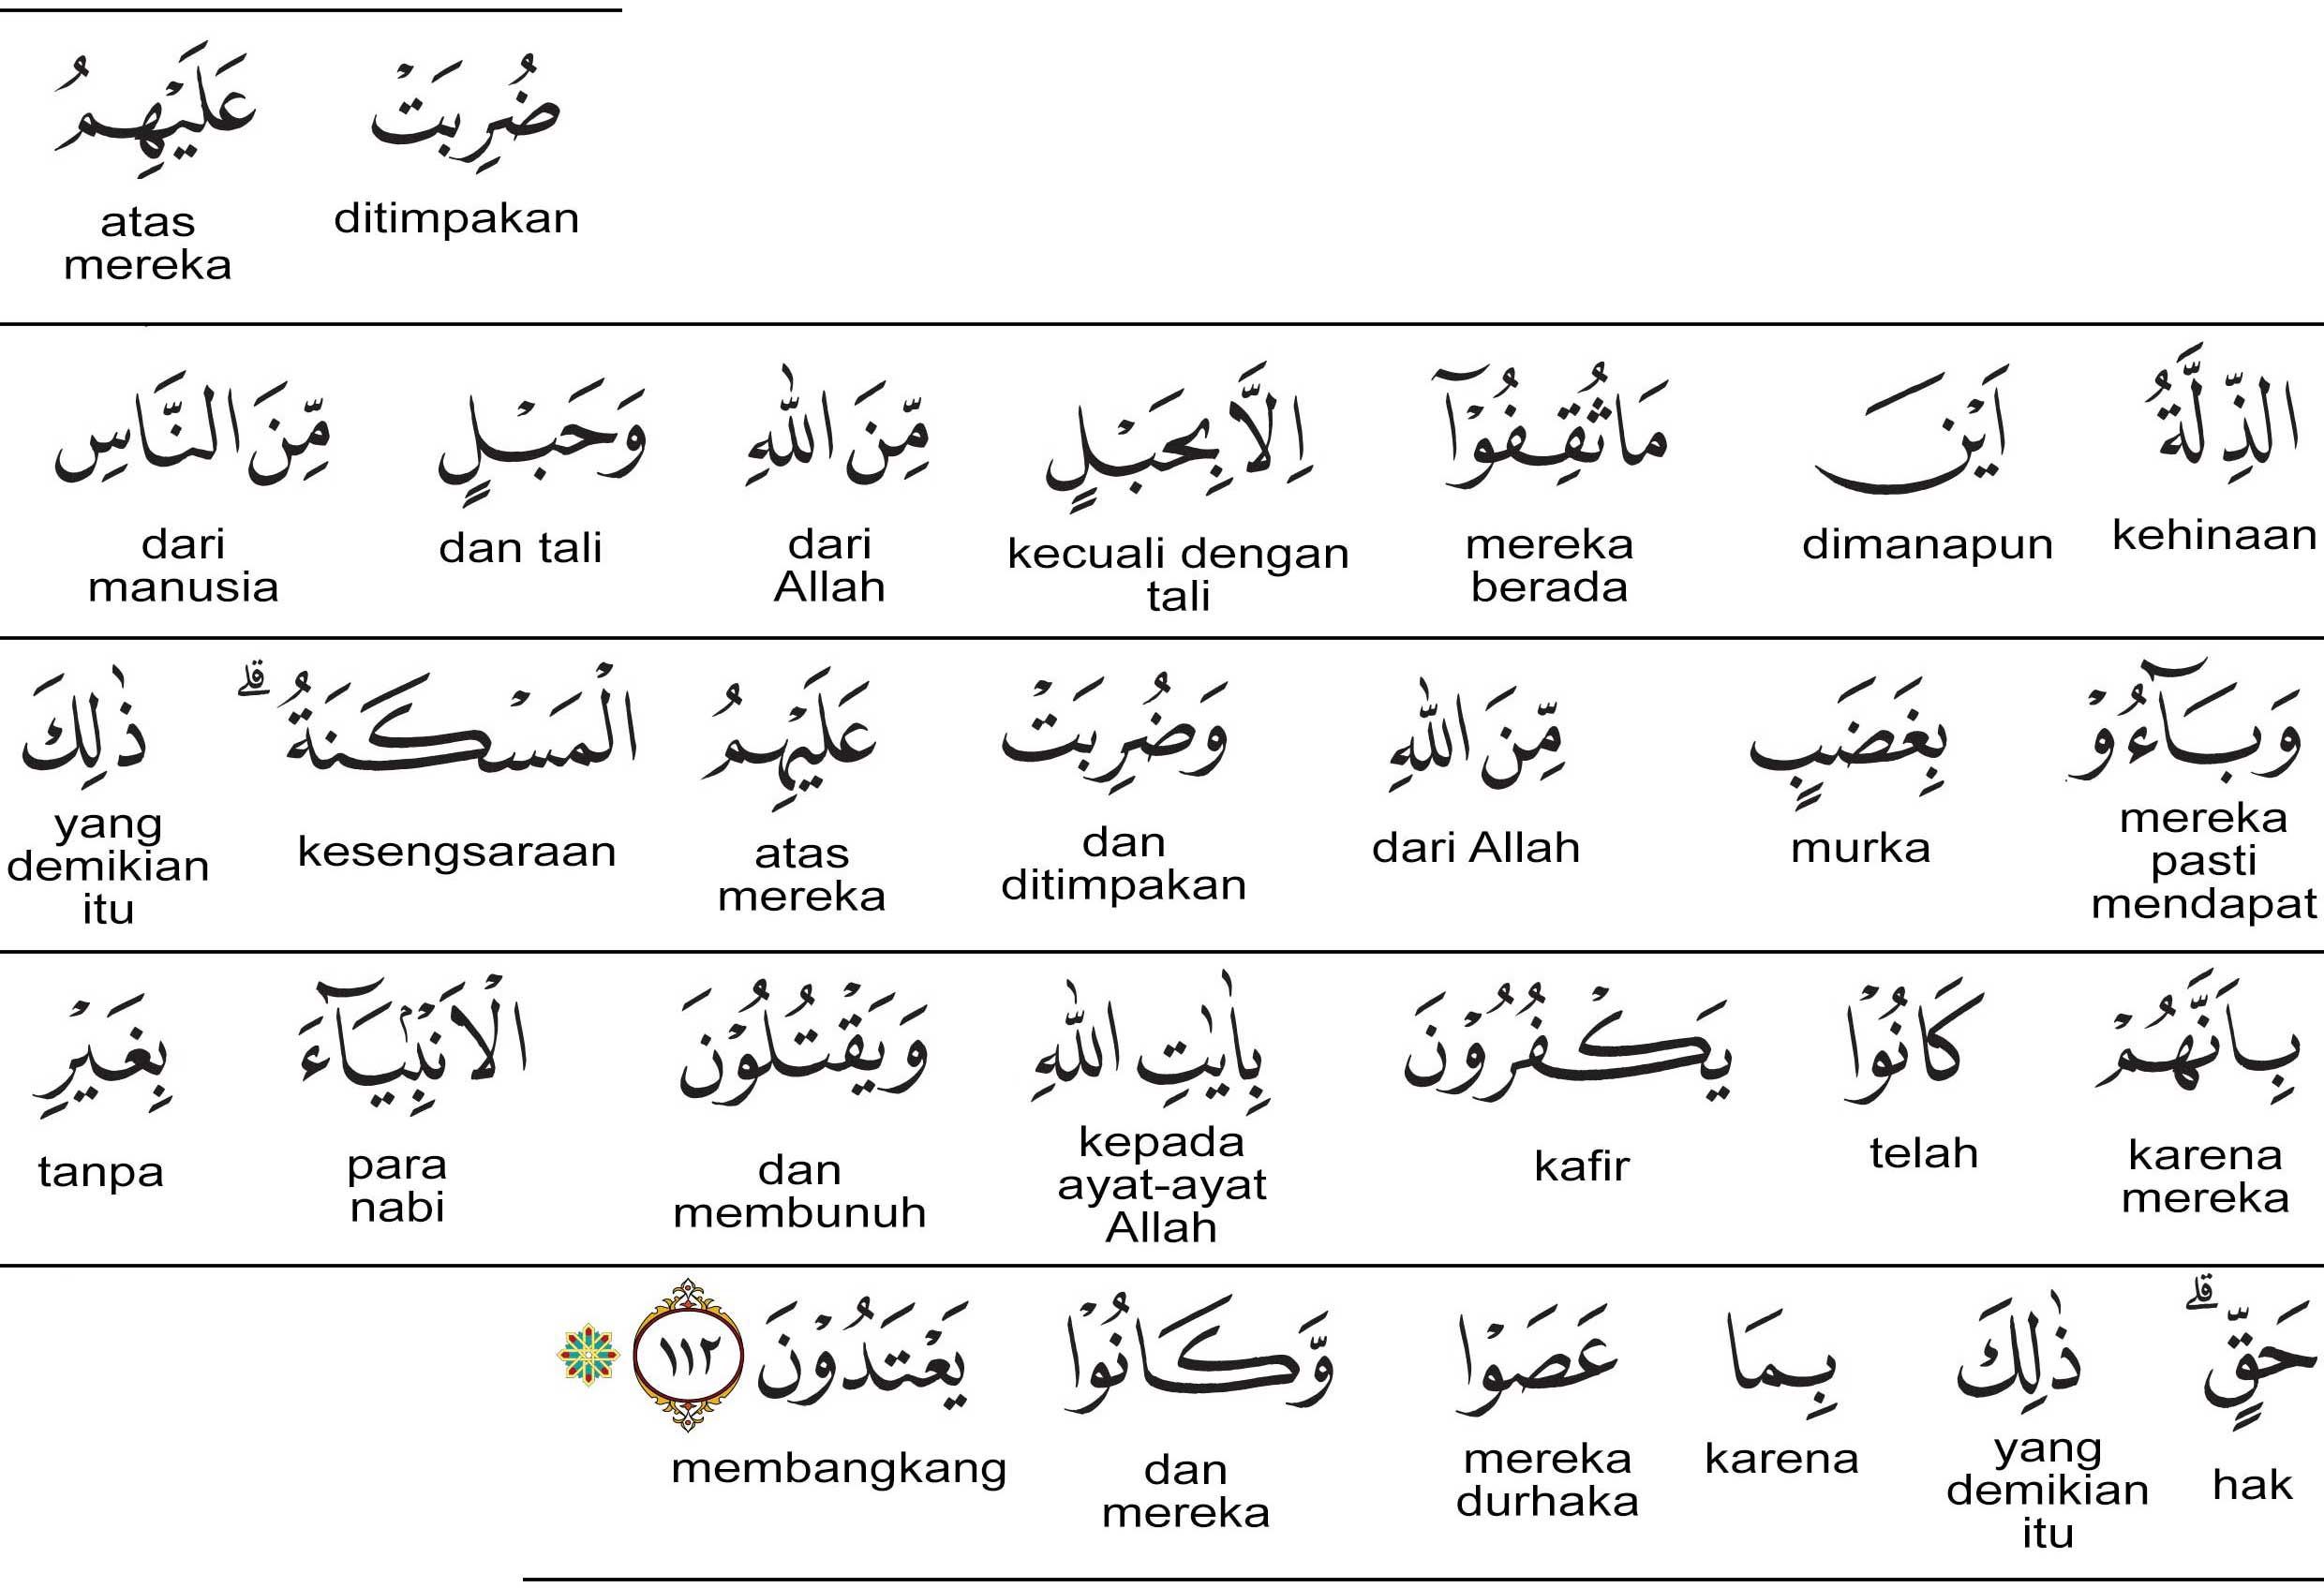 ضُرِبَتْ عَلَيْهِمُ
ditimpakan atas mereka
الذِّلَّةُ اَيْنَ مَا ثُقِفُوْٓا اِلَّا بِحَبْلٍ مِّنَ اللّٰهِ وَحَبْلٍ مِّنَ النَّاسِ
kehinaan dimanapun mereka berada kecuali dengan tali dari Allah dan tali dari manusia
وَبَاۤءُوْ بِغَضَبٍ مِّنَ اللّٰهِ وَضُرِبَتْ عَلَيْهِمُ الْمَسْكَنَةُ ۗ ذٰلِكَ
mereka pasti mendapat murka dari Allah dan ditimpakan atas mereka kesengsaraan yang demikian itu
بِاَنَّهُمْ كَانُوْا يَكْفُرُوْنَ بِاٰيٰتِ اللّٰهِ وَيَقْتُلُوْنَ الْاَنْۢبِيَاۤءَ بِغَيْرِ
karena mereka telah kafir kepada ayat-ayat Allah dan membunuh para nabi tanpa
حَقٍّ ۗ ذٰلِكَ بِمَا عَصَوْا وَّكَانُوْا يَعْتَدُوْنَ ١١٢
hak yang demikian itu karena mereka durhaka dan mereka membangkang